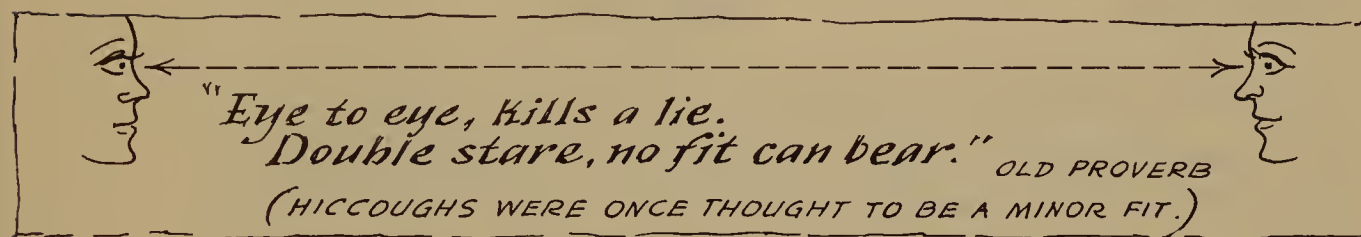 "Eye to eye, kills a lie.
Double stare, no fit can bear."
OLD PROVERB
(HICCOUGHS WERE ONCE THOUGHT TO BE A MINOR FIT.)